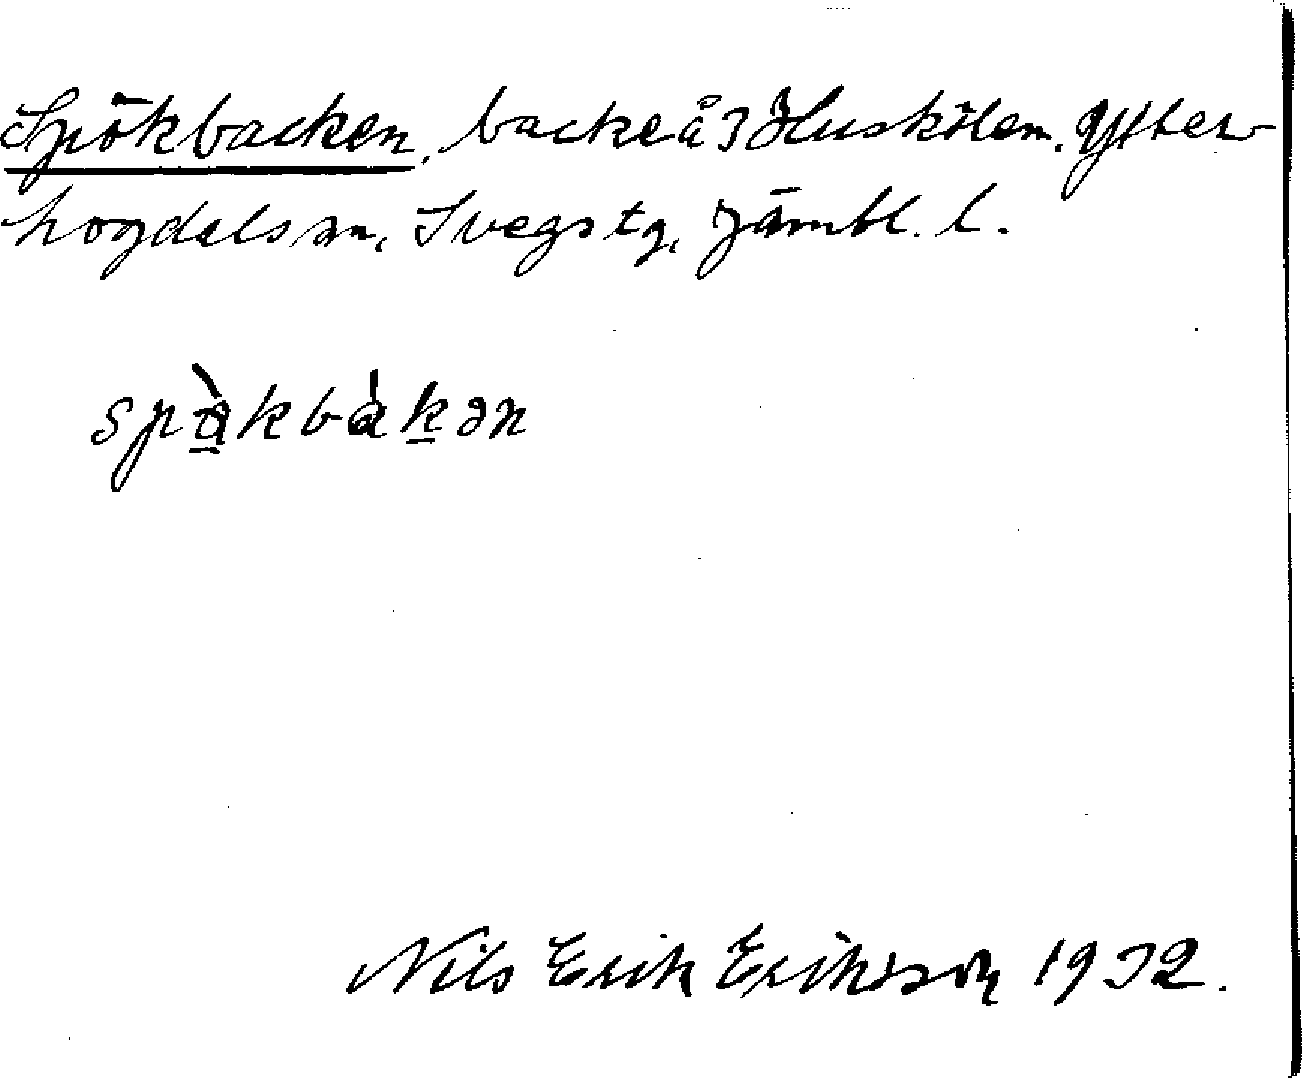 Spökbacken, backe å 3 Huskölen. Ytter-
hogdals sn, Svegs tg, Jämtl. l.
spàkbákən
Nils Erik Eriksson 1932.